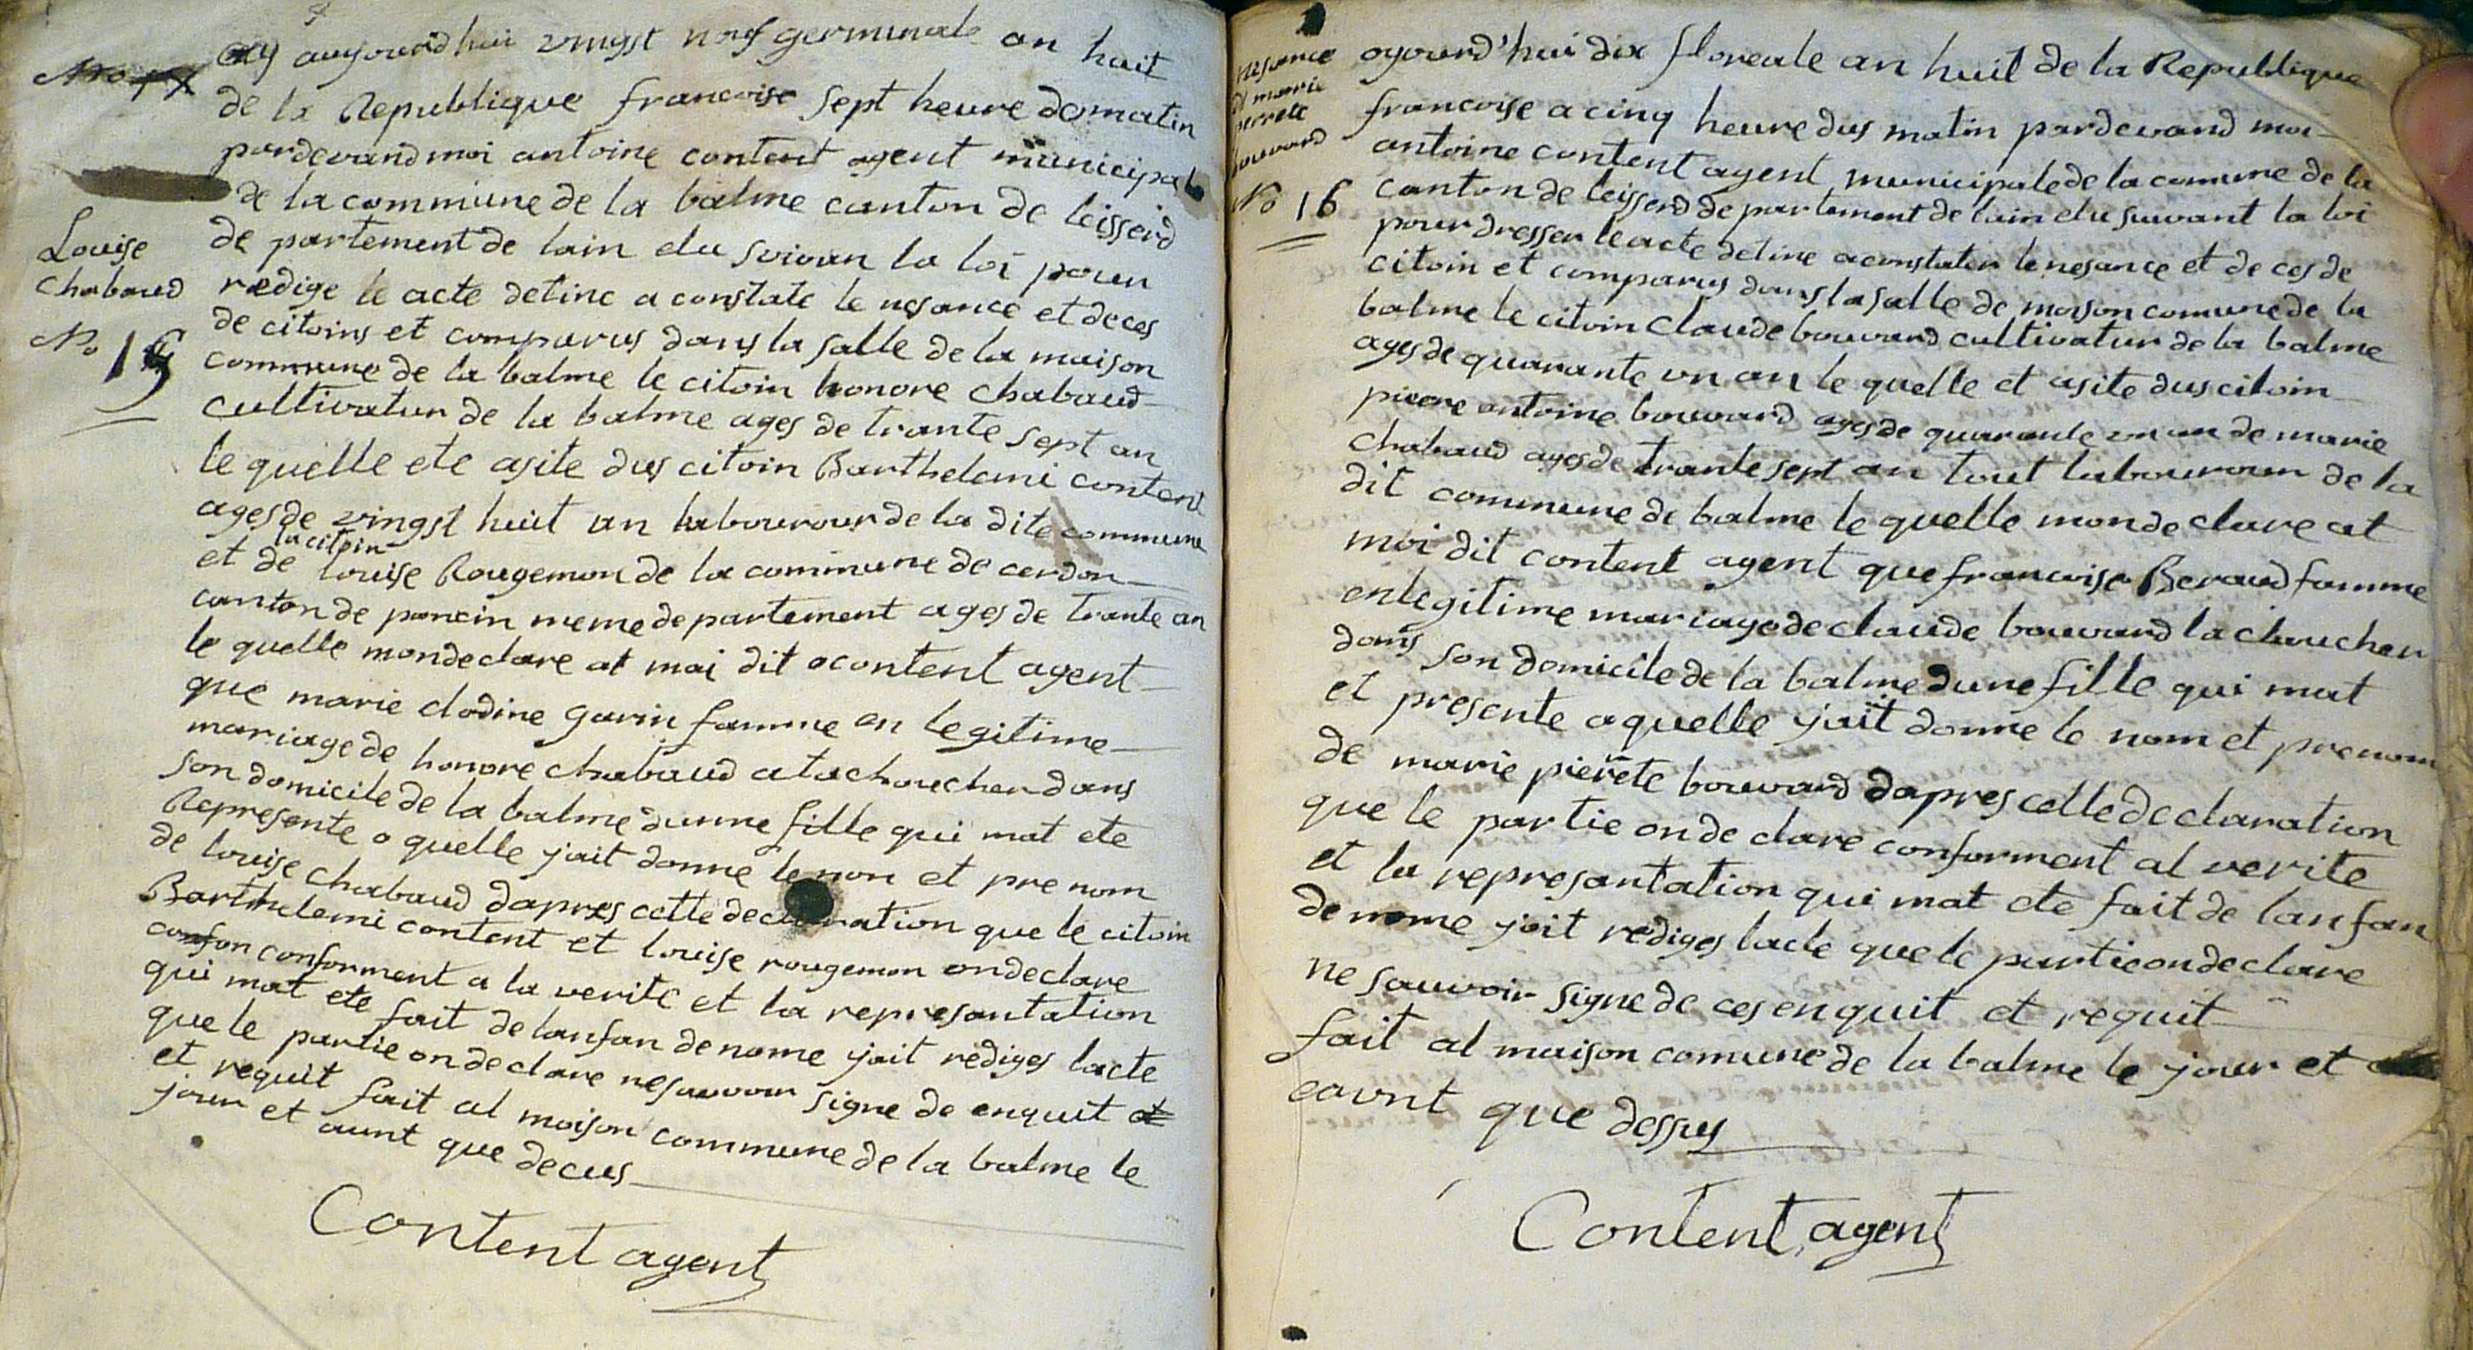 aujourd'hui vingst neuf germinale an huit
de la Republique francoise sept heure de matin
pardevand moi antoine content agent municipal
de la commune de la balme canton de leisserd
de partement de lain elu suivan la loi pour
redige le acte detine a constate le nesance et deces
de citoins et comparus dans la salle de la maison
commune de la balme le citoin honore chabaud
cultivatur de la balme ages de trante sept an
le quelle ete asite dus citoin Barthelemi content
ages de vingst huit an labourour de la dite commune
la citoin
et de louise Rougemon de la commune de cerdon
canton de poncin meme de partement ages de trante an
le quelle mon declare at moi dit content agent
que marie clodine garin famme en legitime
mariage de honore chabaud at achoucher dans
son domicile de la balme dunne fille qui mat ete
Represente a quelle jait donne le non et pre nom
de louise chabaud dapres cette declaration que le citoin
Barthelemi content et louise rougemon on declare
conforment a la verite et la represantation
qui mat ete fait de lanfan denome jait rediges lacte
que le partie on declare ne sauvoir signe de enquit et
et requit fait al maison commune de la balme le
jour et aunt que decus
Content agent
Louise
Chabaud
No 15
oyourd'hui dix floreale an huit de la Republique
francoise a cinq heure dus matin pardevand moi
antoine content agent municipale de la comune de la
canton de leisserd de partement de lain elu suivant la loi
pour dresser le acte detine a constater le nesance et de ces de
citoin et comparus dans la salle de moison comune de la
balme le citoin Claude bouvard cultivatur de la balme
ages de quarante un an le quelle et asite dus citoin
pierre antoine bouvard ages de quarante un an de marie
Chabaud ages de trante sept an tout labourour de la
dit commune de balme le quelle mon declare at
moi dit content agent que francoise Beraud famme
en legitime mariage de claude bouvard la choucher
dans son domicile de la balme dune fille qui mat
et presente a quelle jait donne le nom et prenom
de marie pierete bouvard dapres celle declaration
que le partie on de clare conforment al verite
et la represantation qui mat ete fait de lanfan
denome jait rediges lacte que le partie on declare
ne sauvoir signe de ces enquit et requit
fait al maison comune de la balme le jour et
eavnt que dessus
Content agent
nesance
marie
perrete
bouvard
No 16